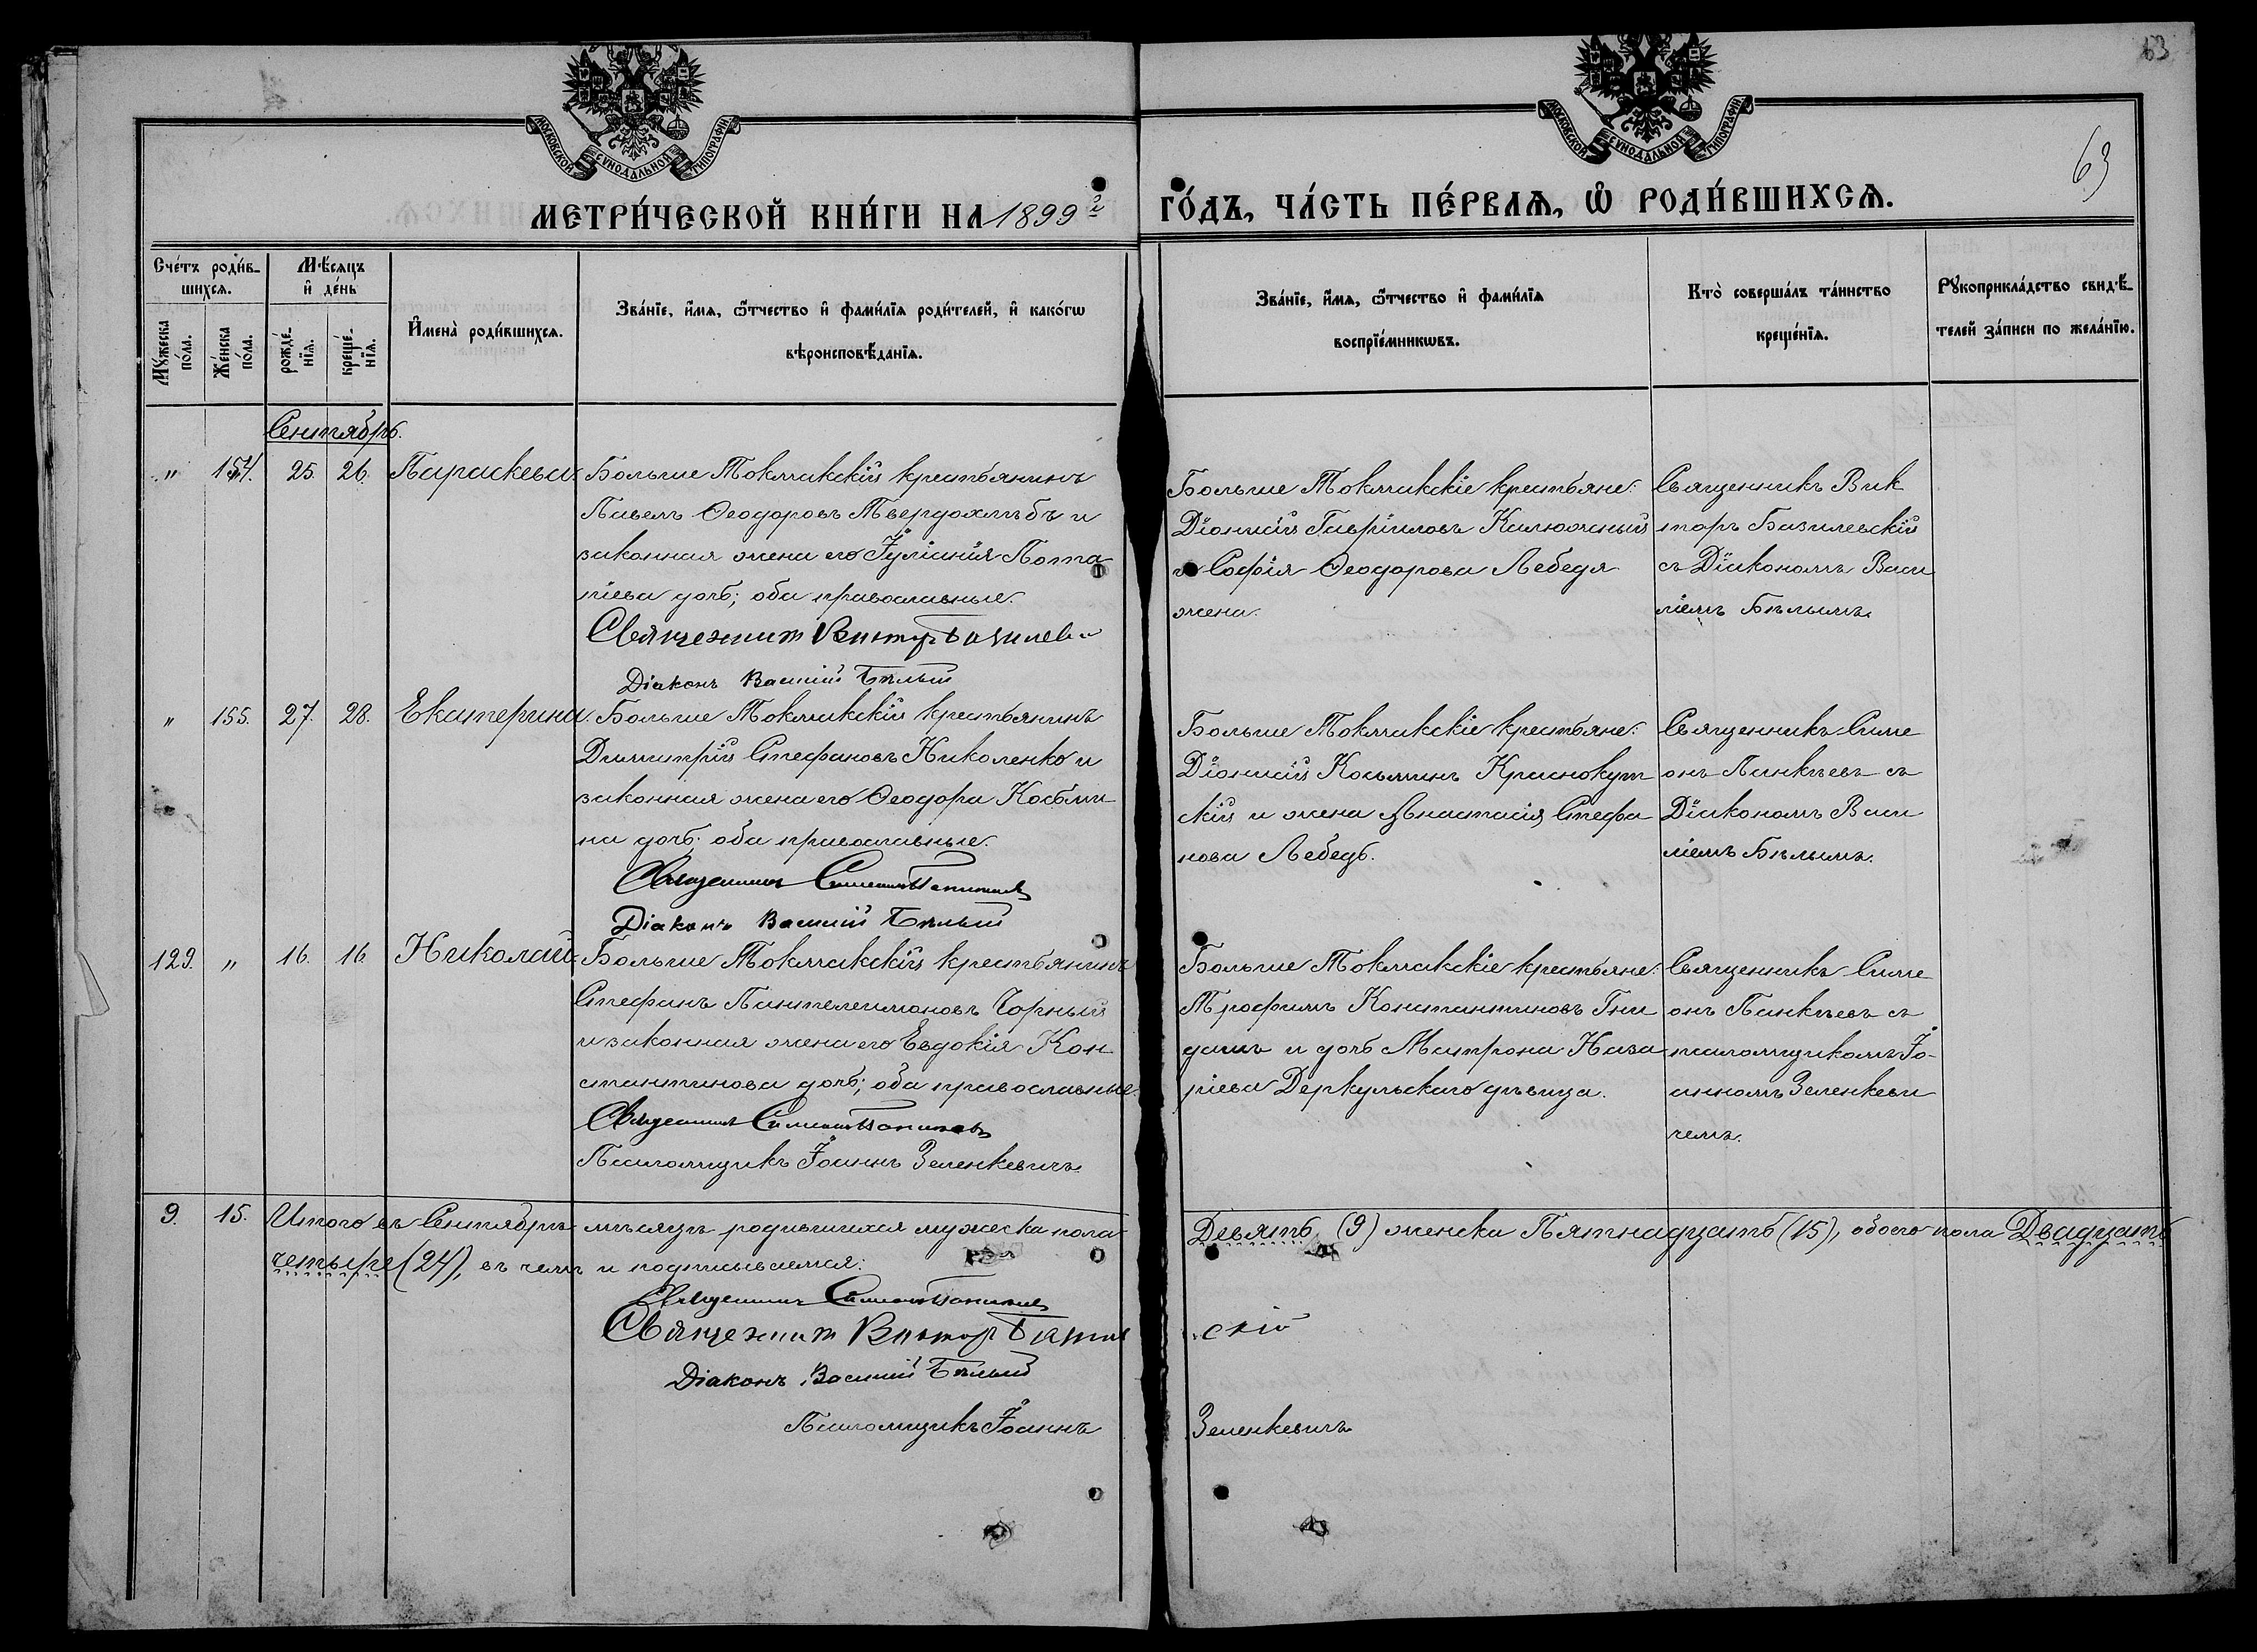 63
МОСКОВСКОЙ СУНОДАЛЬНОЙ ТИПОГРАФІИ
МОСКОВСКОЙ СУНОДАЛЬНОЙ ТИПОГРАФІИ
63
МЕТРИ́ЧЕСКОЙ КНИ́ГИ НА 1899 г ГО́ДЪ, ЧА́СТЬ ПЕ́РВАѦ, Ѽ РОДИ́ВШИХСѦ.
Счéтъ роди́в-
шихсѧ.
Мꙋ́жеска по́ла.
Жéнска по́ла.
Мѣ́сѧцъ
и҆ дéнь
рождé-нїѧ.
крещé-нїѧ.
И҆менà роди́вшихсѧ.
Звáнїе, и҆́мѧ, ѻ҆́тчество и҆ фами́лїѧ роди́телей, и҆ какóгѡ
вѣроисповѣ́данїѧ.
Звáнїе, и҆́мѧ, ѻ҆́тчество и҆ фами́лїѧ
воспрїéмникѡвъ.
Ктò совершáлъ тáинство
крещéнїѧ.
Рꙋкоприклáдство свидѣ́-
телей зáписи по желáнїю.
Сентябрь.
" 154. 25. 26. Параскева.
Больше Токмакскій крестьянинъ
Павелъ Ѳеодоровъ Твердохлѣбъ и
законная жена его Іуліанія Пота
піева дочь; оба православные.
Священник Виктор Базилев
Діаконъ Василій Бѣлый
Больше Токмакскіе крестьяне:
Діонисій Гавріиловъ Калюжный
и Софія Ѳеодорова Лебедя
жена.
Священникъ Вик
торъ Базилевскій
съ Діакономъ Васи
ліемъ Бѣлымъ.
" 155. 27. 28. Екатерина.
Больше Токмакскій крестьянинъ
Димитрій Стефановъ Николенко и
законная жена его Ѳеодора Косьми
на дочь; оба православные.
Священникъ Симеонъ Панкѣевъ
Діаконъ Василій Бѣлый
Больше Токмакскіе крестьяне:
Діонисій Косьминъ Краснокут
скій и жена Анастасія Стефа
нова Лебедь.
Священникъ Симе
онъ Панкѣевъ съ
Діакономъ Васи
ліемъ Бѣлымъ.
129. " 16. 16 Николай.
Больше Токмакскій крестьянинъ
Стефанъ Пантелеимоновъ Чорный
и законная жена его Евдокія Кон
стантинова дочь; оба православные.
Священникъ Симеонъ Панкѣевъ
Псаломщикъ Іоаннъ Зеленкевичъ
Больше Токмакскіе крестьяне:
Трофимъ Константиновъ Гни
дашъ и дочь Матрона Наза
ріева Деркульскаго дѣвица.
Священникъ Симе
онъ Панкѣевъ съ
псаломщикомъ Іо-
анномъ Зеленкеви
чемъ.
9. 15. Итого въ Сентябрѣ мѣсяцѣ родившихся мужеска пола Девять (9) женска Пятнадцать (15), обоего пола Двадцать
четыре (24), въ чемъ и подписываемся:
Священникъ Симеонъ Панкѣевъ
Священник Виктор Базилев ский
Діаконъ Василій Бѣлый
Псаломщикъ Іоаннъ Зеленкевичъ